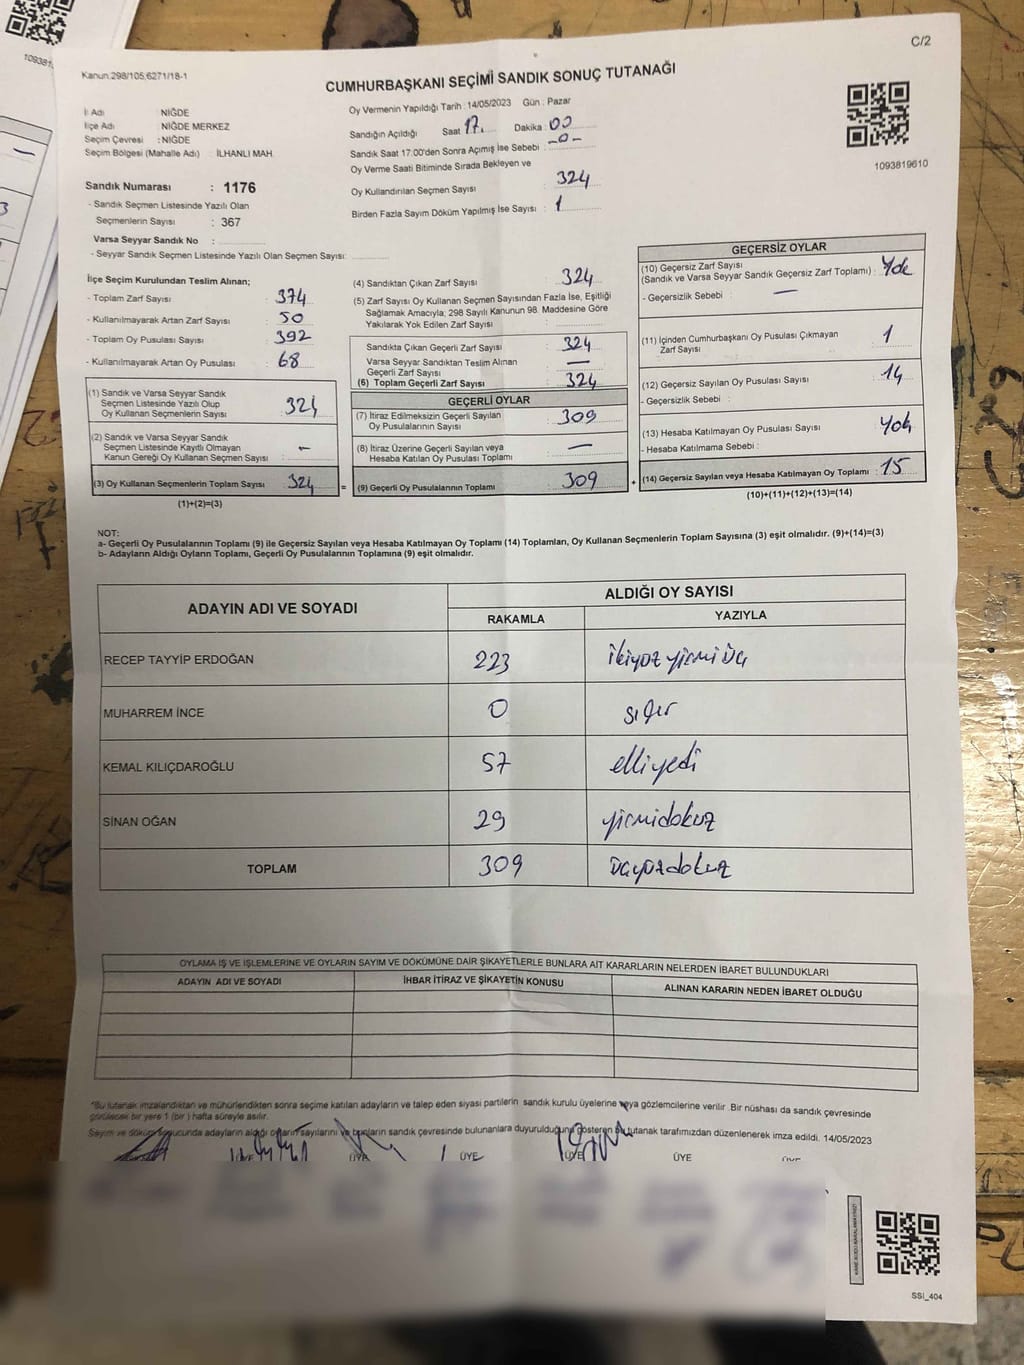 C/2
Kanun.298/105,6271/18-1
CUMHURBAŞKANI SEÇİMİ SANDIK SONUÇ TUTANAĞI
İl Adı : NİĞDE
İlçe Adı : NİĞDE MERKEZ
Seçim Çevresi : NİĞDE
Seçim Bölgesi (Mahalle Adı) : İLHANLI MAH.
Oy Vermenin Yapıldığı Tarih : 14/05/2023 Gün : Pazar
Sandığın Açıldığı Saat : 17. Dakika : 00
Sandık Saat 17.00'den Sonra Açımış İse Sebebi : -0-
Oy Verme Saati Bitiminde Sırada Bekleyen ve
Oy Kullandırılan Seçmen Sayısı 324
Birden Fazla Sayım Döküm Yapılmış İse Sayısı : 1
1093819610
Sandık Numarası : 1176
- Sandık Seçmen Listesinde Yazılı Olan
Seçmenlerin Sayısı : 367
Varsa Seyyar Sandık No :
- Seyyar Sandık Seçmen Listesinde Yazılı Olan Seçmen Sayısı:
İlçe Seçim Kurulundan Teslim Alınan;
- Toplam Zarf Sayısı : 374
- Kullanılmayarak Artan Zarf Sayısı : 50
- Toplam Oy Pusulası Sayısı : 392
- Kullanılmayarak Artan Oy Pusulası : 68
(1) Sandık ve Varsa Seyyar Sandık
Seçmen Listesinde Yazılı Olup
Oy Kullanan Seçmenlerin Sayısı : 324
(2) Sandık ve Varsa Seyyar Sandık
Seçmen Listesinde Kayıtlı Olmayan
Kanun Gereği Oy Kullanan Seçmen Sayısı : -
(3) Oy Kullanan Seçmenlerin Toplam Sayısı : 324
(1)+(2)=(3)
(4) Sandıktan Çıkan Zarf Sayısı : 324
(5) Zarf Sayısı Oy Kullanan Seçmen Sayısından Fazla İse, Eşitliği
Sağlamak Amacıyla; 298 Sayılı Kanunun 98. Maddesine Göre
Yakılarak Yok Edilen Zarf Sayısı :
Sandıkta Çıkan Geçerli Zarf Sayısı : 324
Varsa Seyyar Sandıktan Teslim Alınan
Geçerli Zarf Sayısı : —
(6) Toplam Geçerli Zarf Sayısı : 324
GEÇERLİ OYLAR
(7) İtiraz Edilmeksizin Geçerli Sayılan
Oy Pusulalarının Sayısı : 309
(8) İtiraz Üzerine Geçerli Sayılan veya
Hesaba Katılan Oy Pusulası Toplamı : —
= (9) Geçerli Oy Pusulalarının Toplamı : 309
GEÇERSİZ OYLAR
(10) Geçersiz Zarf Sayısı
(Sandık ve Varsa Seyyar Sandık Geçersiz Zarf Toplamı) : Yok
- Geçersizlik Sebebi : —
(11) İçinden Cumhurbaşkanı Oy Pusulası Çıkmayan
Zarf Sayısı : 1
(12) Geçersiz Sayılan Oy Pusulası Sayısı : 14
- Geçersizlik Sebebi :
(13) Hesaba Katılmayan Oy Pusulası Sayısı : Yok
- Hesaba Katılmama Sebebi :
+ (14) Geçersiz Sayılan veya Hesaba Katılmayan Oy Toplamı : 15
(10)+(11)+(12)+(13)=(14)
NOT:
a- Geçerli Oy Pusulalarının Toplamı (9) ile Geçersiz Sayılan veya Hesaba Katılmayan Oy Toplamı (14) Toplamları, Oy Kullanan Seçmenlerin Toplam Sayısına (3) eşit olmalıdır. (9)+(14)=(3)
b- Adayların Aldığı Oyların Toplamı, Geçerli Oy Pusulalarının Toplamına (9) eşit olmalıdır.
ADAYIN ADI VE SOYADI
ALDIĞI OY SAYISI
RAKAMLA YAZIYLA
RECEP TAYYİP ERDOĞAN 223 ikiyüz yirmi üç
MUHARREM İNCE 0 sıfır
KEMAL KILIÇDAROĞLU 57 elliyedi
SİNAN OĞAN 29 yirmidokuz
TOPLAM 309 üçyüzdokuz
OYLAMA İŞ VE İŞLEMLERİNE VE OYLARIN SAYIM VE DÖKÜMÜNE DAİR ŞİKAYETLERLE BUNLARA AİT KARARLARIN NELERDEN İBARET BULUNDUKLARI
ADAYIN ADI VE SOYADI İHBAR İTİRAZ VE ŞİKAYETİN KONUSU ALINAN KARARIN NEDEN İBARET OLDUĞU
*Bu tutanak imzalandıktan ve mühürlendikten sonra seçime katılan adayların ve talep eden siyasi partilerin sandık kurulu üyelerine veya gözlemcilerine verilir. Bir nüshası da sandık çevresinde
görülecek bir yere 1 (bir ) hafta süreyle asılır.
Sayım ve döküm sonucunda adayların aldığı oyların sayılarını ve bunların sandık çevresinde bulunanlara duyurulduğunu gösteren bu tutanak tarafımızdan düzenlenerek imza edildi. 14/05/2023
ÜYE ÜYE ÜYE ÜYE
SSİ_404